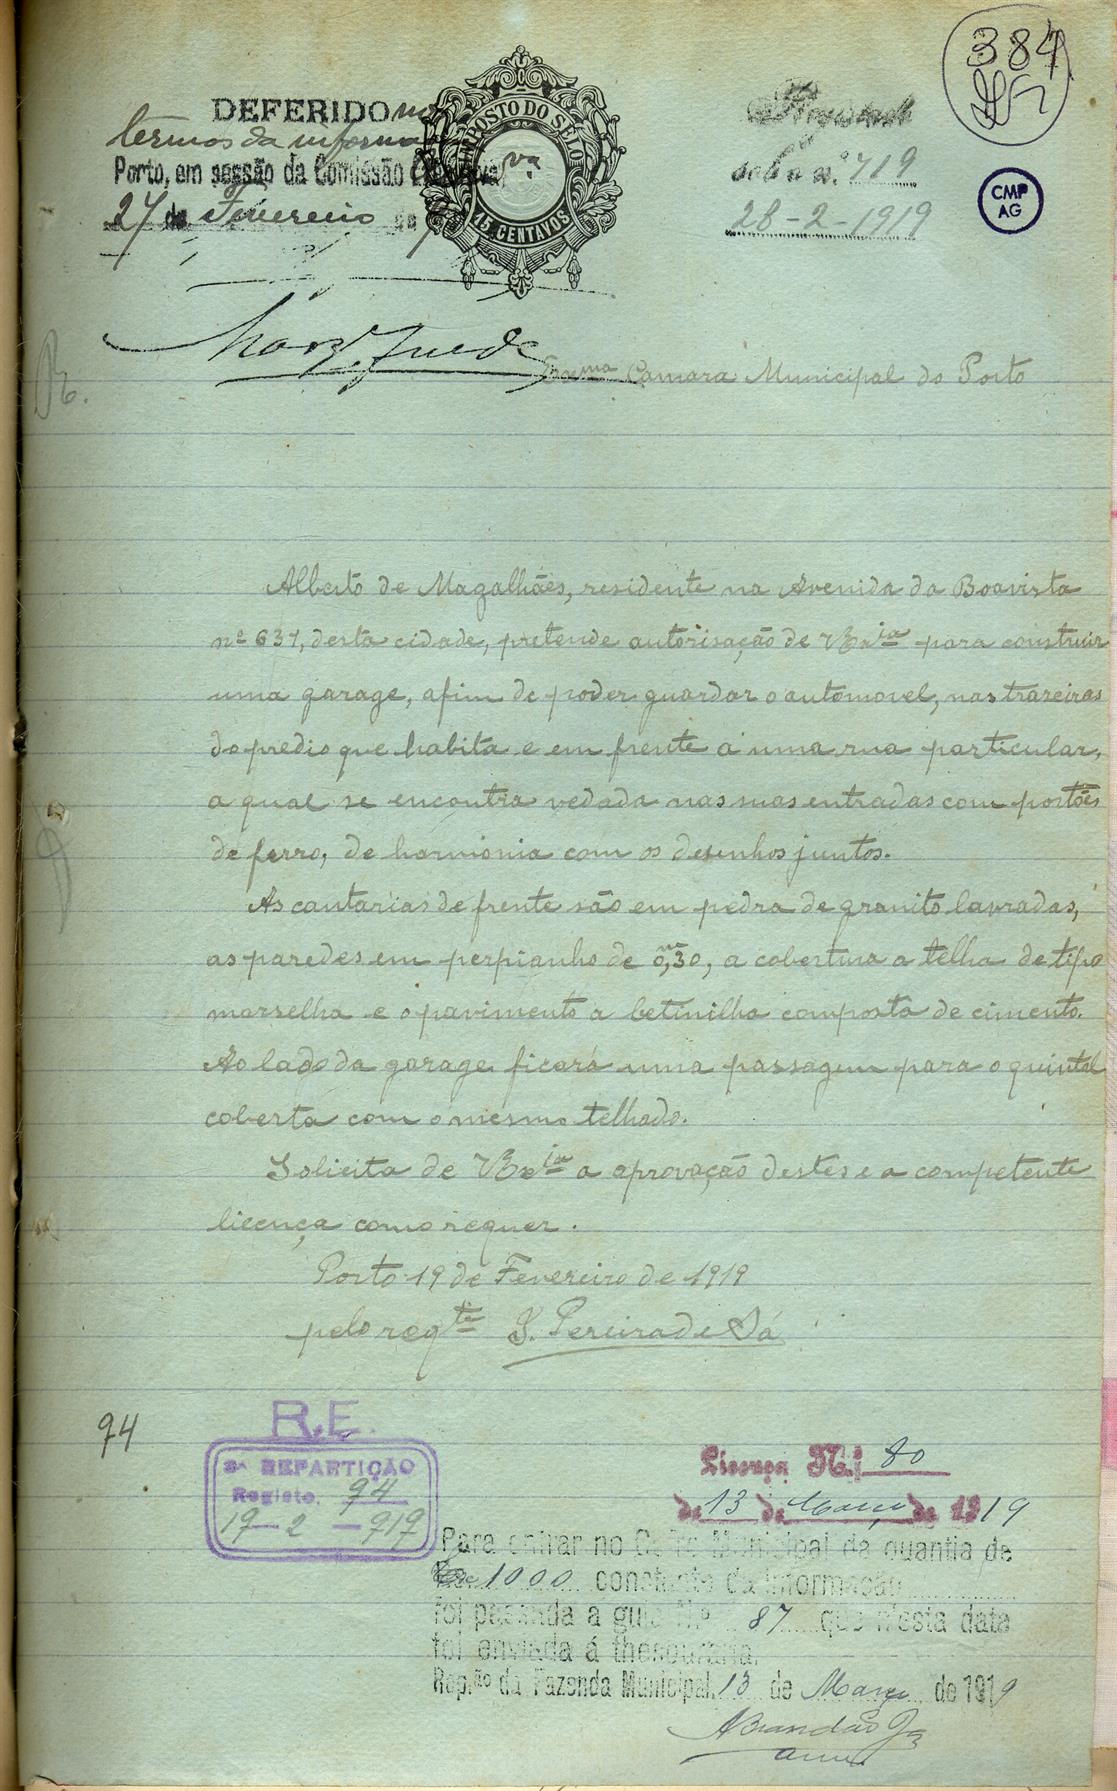 384
DEFERIDO nos
termos da informa
Porto, em sessão da Comissão Executiva,
27 de Fevereiro de
IMPOSTO DO SELO
15 CENTAVOS
Registado
sob o n.º 719
28-2-1919
CMP
AG
Exma Camara Municipal do Porto
Alberto de Magalhães, residente na Avenida da Boavista
nº 637, desta cidade, pretende autorisação de VExcia para construir
uma garage, afim de poder guardar o automovel, nas trazeiras
do predio que habita e em frente a uma rua particular,
a qual se encontra vedada nas suas entradas com portões
de ferro, de harmonia com os desenhos juntos.
As cantarias de frente são em pedra de granito lavradas,
as paredes em perpianho de 0,m30, a cobertura a telha de tipo
marselha e o pavimento a betinilha composta de cimento.
Ao lado da garage ficará uma passagem para o quintal
coberta com o mesmo telhado.
Solicita de VExcia a aprovação destes e a competente
licença como requer.
Porto 19 de Fevereiro de 1919
pelo reqte J. Pereira de Sá
94
R.E.
3ª REPARTIÇÃO
Registo, 94
19-2-919
Licença N.º 80
de 13 de Março de 1919
Para entrar no Cofre Municipal da quantia de
1000 constante da informação
foi passada a guia N.º 87 que n'esta data
foi enviada á thesouraria.
Rep.ão da Fazenda Municipal, 13 de Março de 1919